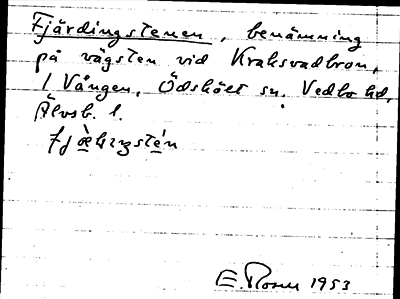 Fjärdingstenen, benämning
på vägsten vid Kraksvadbron,
1 Vången, Ödskölt sn. Vedbo hd,
Älvsb. l.
E. Rosen 1953